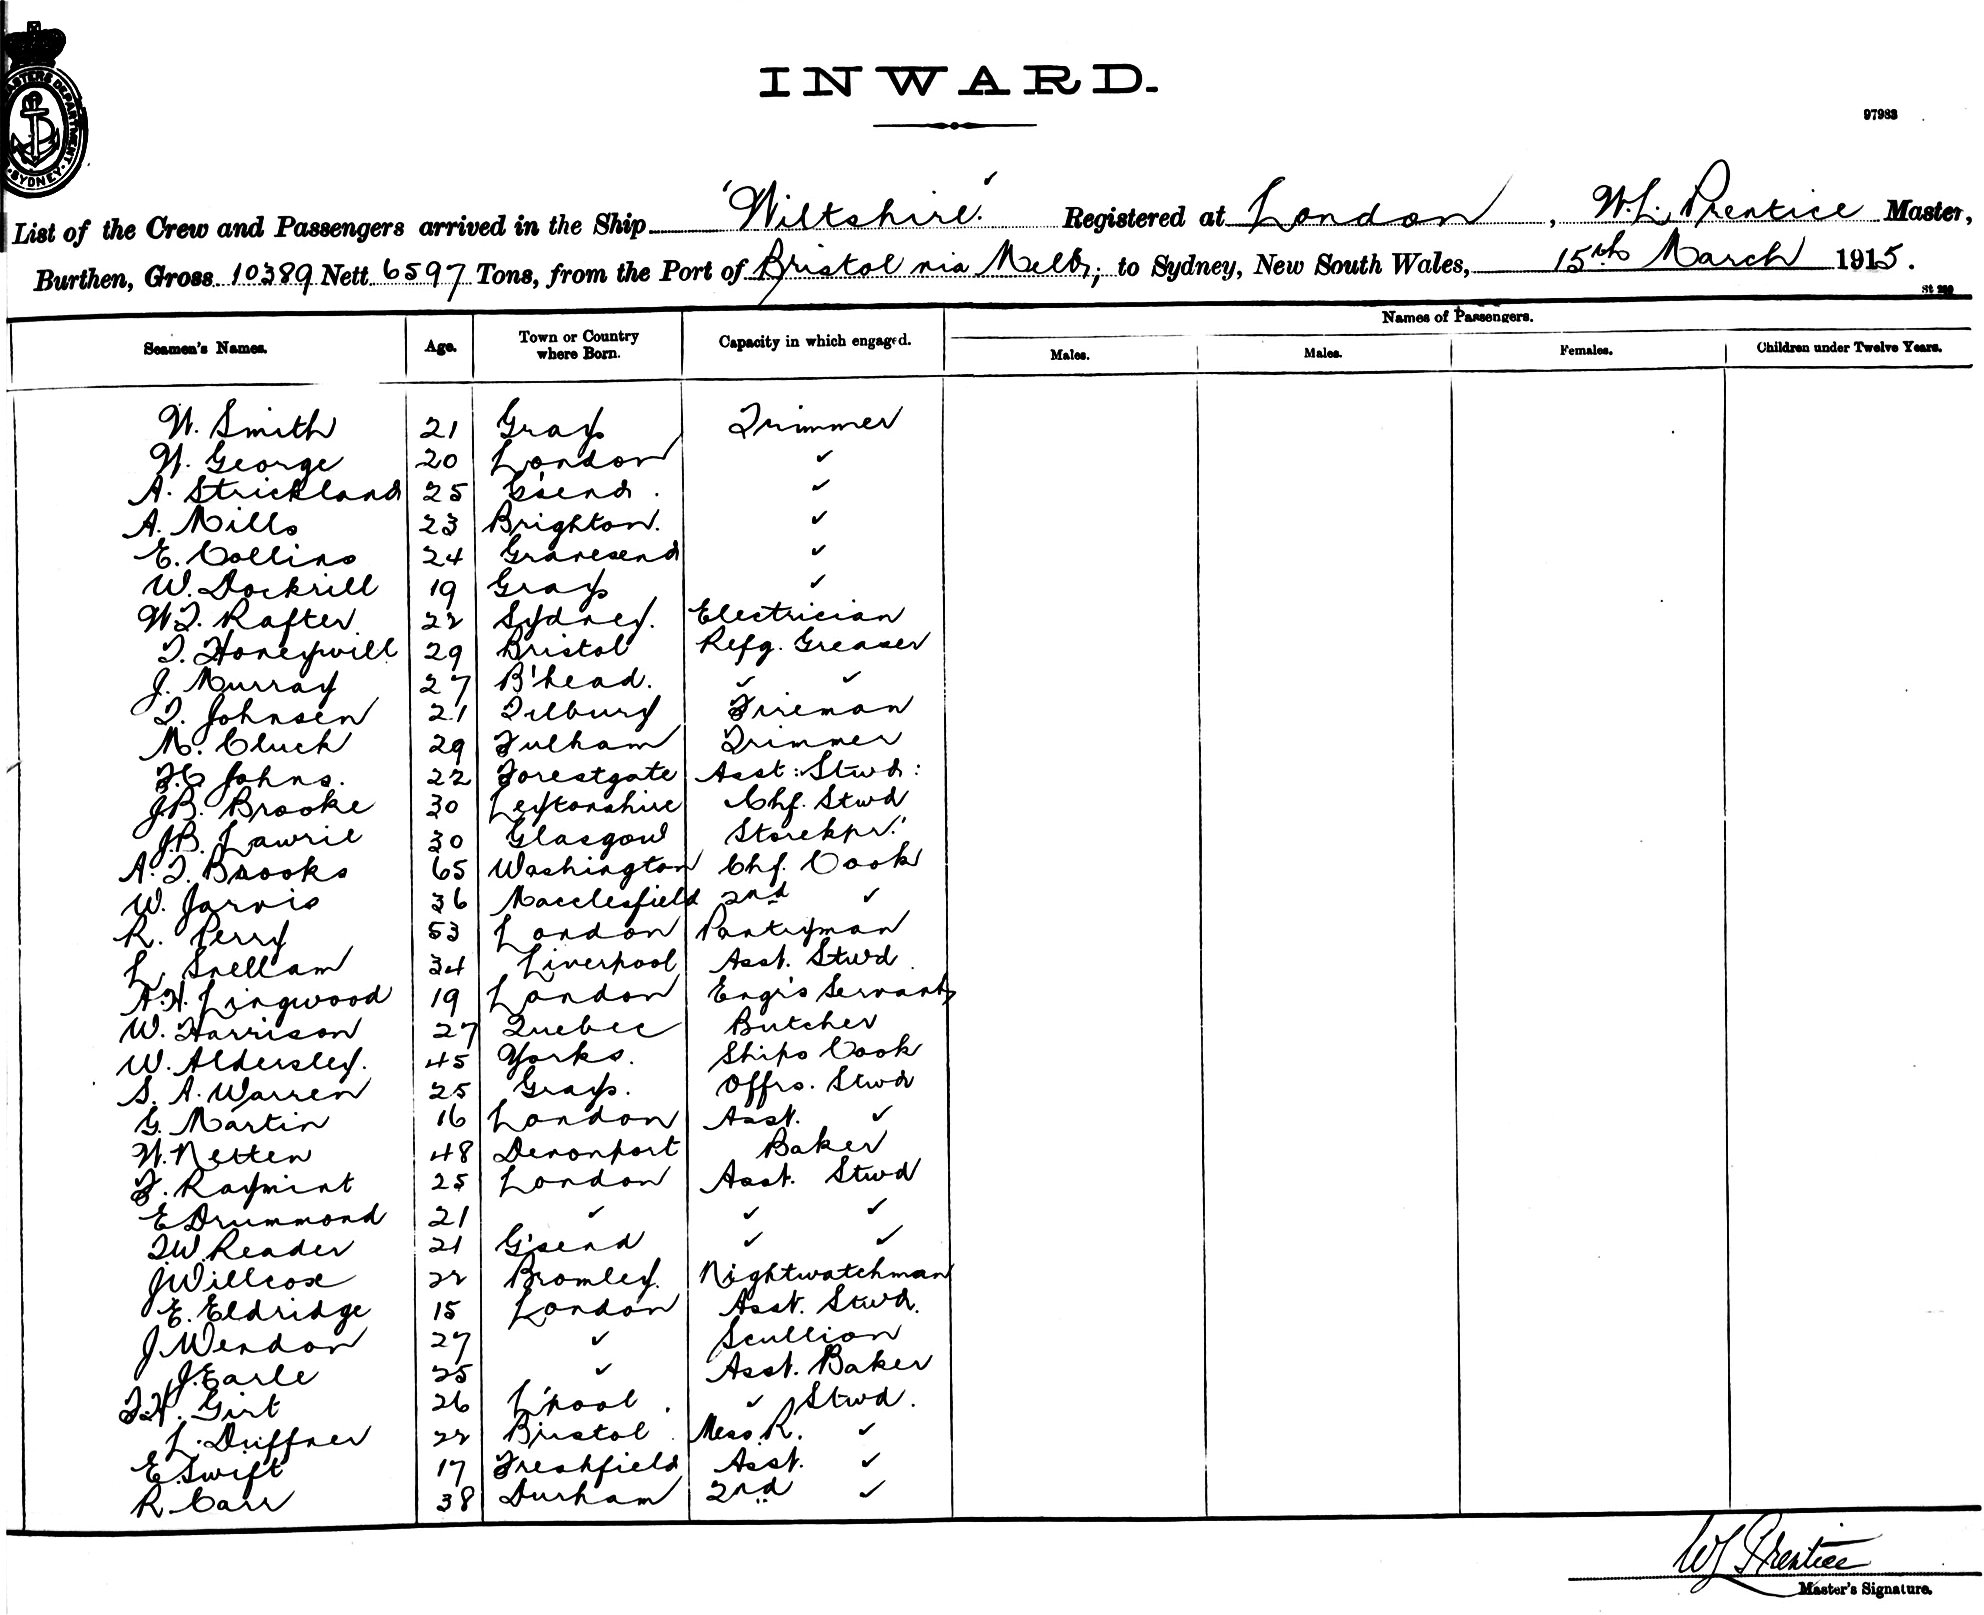 INWARD.
97983
MASTERS DEPARTMENT. SYDNEY.
List of the Crew and Passengers arrived in the Ship 'Wiltshire' Registered at London, W.L. Prentice Master,
Burthen, Gross 10389 Nett 6597 Tons, from the Port of Bristol via Melb; to Sydney, New South Wales, 15th March 1915.
Names of Passengers.
Seamen's Names. Age. Town or Country where Born. Capacity in which engaged. Males. Males. Females. Children under Twelve Years.
W. Smith 21 Grays Trimmer
W. George 20 London ✓
A. Strickland 25 G'send. ✓
A. Mills 23 Brighton. ✓
E. Collins 24 Gravesend ✓
W. Dockrill 19 Grays ✓
W.T. Rafter 22 Sydney. Electrician
T. Honeywill 29 Bristol Refg. Greaser
J. Murray 27 B'head. ✓ ✓
T. Johnsen 21 Tilbury Fireman
M. Cluck 29 Fulham Trimmer
Johns. 22 Forestgate Asst: Stwd:
J.B. Brooke 30 Leytonshire Chf. Stwd
J.B. Lawrie 30 Glasgow Storekpr.
A.T. Brooks 65 Washington Chf. Cook
W. Jarvis 36 Macclesfield 2nd ✓
R. Perry 53 London Pantryman
L. Snellam 34 Liverpool Asst. Stwd.
A.H. Lingwood 19 London Engrs Servant
W. Harrison 27 Quebec Butcher
W. Aldersley. 45 Yorks. Ships Cook
S. A. Warren 25 Grays. Offrs. Stwd
G. Martin 16 London Asst. ✓
W. Netten 48 Devonport Baker
F. Raymint 25 London Asst. Stwd
E Drummond 21 ✓ ✓ ✓
T.W. Reader 21 G'send ✓ ✓
J Willcox 22 Bromley. Nightwatchman
E. Eldridge 15 London Asst. Stwd.
J Wendon 27 ✓ Scullion
J. Earle 25 ✓ Asst. Baker
T.H. Girt 26 L'pool. ✓ Stwd.
L. Duffner 22 Bristol Mess R. ✓
E. Swift 17 Freshfield Asst. ✓
R. Carr 38 Durham 2nd ✓
WL Prentice
Master's Signature.